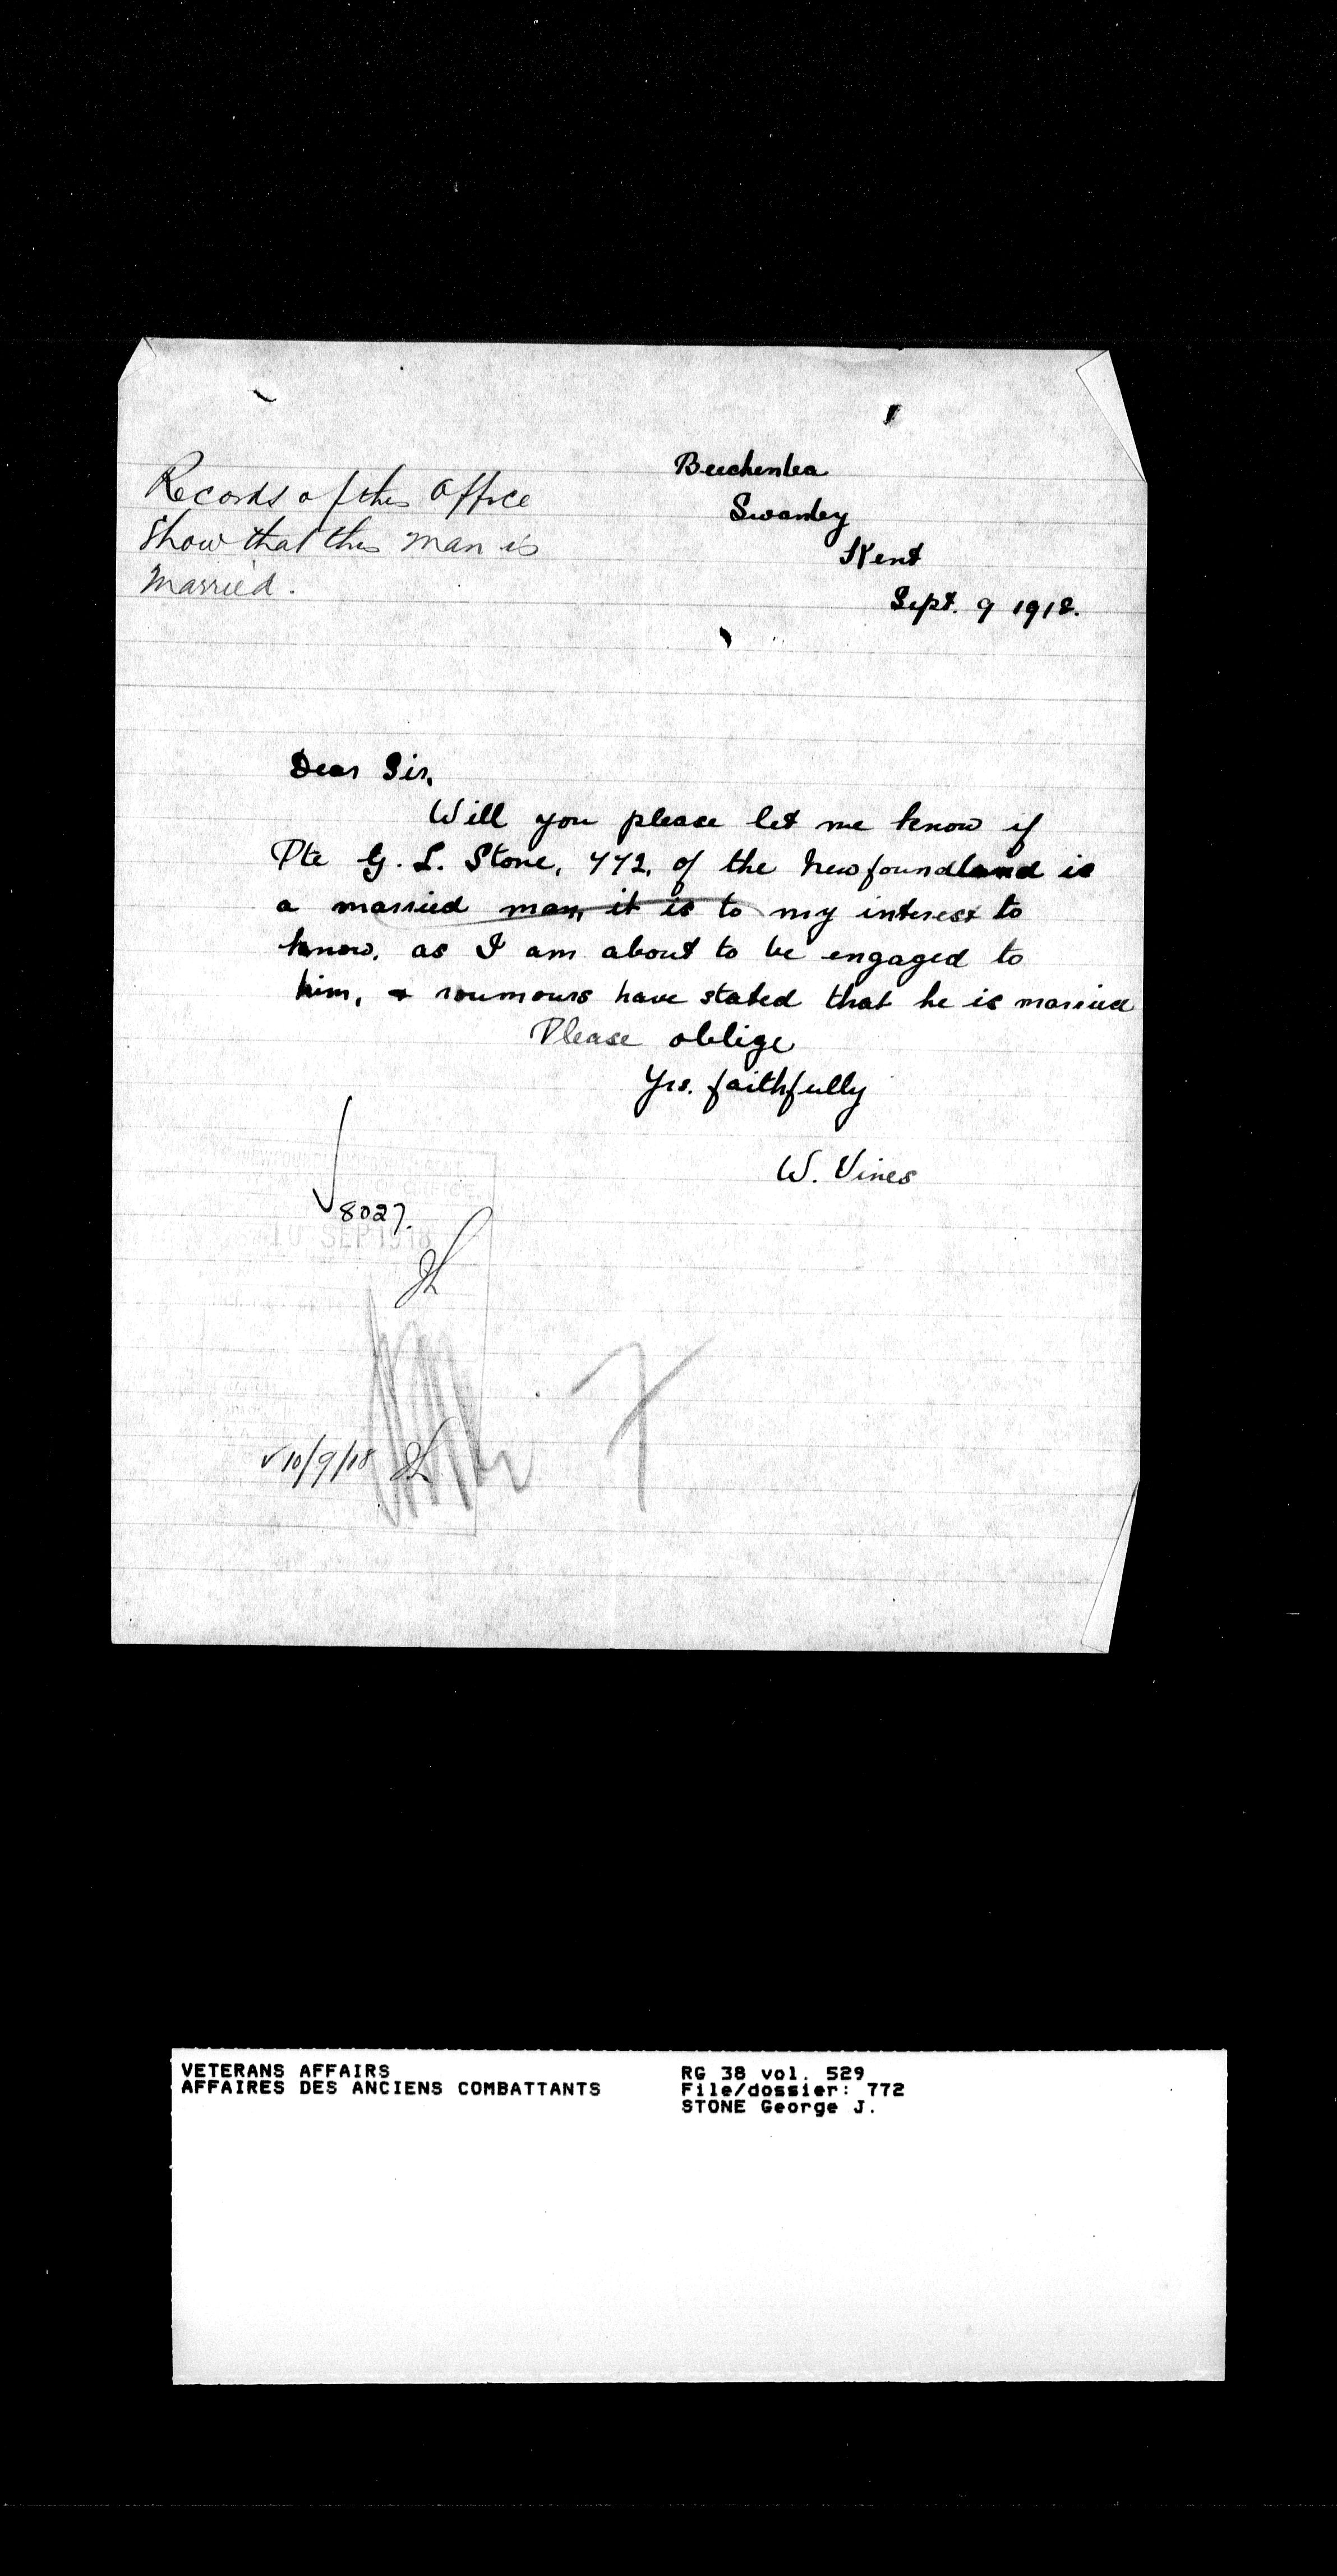 Records of this Office
Show that this man is
Married.
Beechenlea
Swanley
Kent
Sept. 9 1918.
Dear Sir,
Will you please let me know if
Pte G. L. Stone, 772, of the Newfoundland is
a married man, it is to my interest to
know, as I am about to be engaged to
him, & roumours have stated that he is married
Please oblige
Yrs. faithfully
W. Vines
8027.
10 SEP 1918
JL
10/9/18 JL
VETERANS AFFAIRS
AFFAIRES DES ANCIENS COMBATTANTS
RG 38 vol. 529
File/dossier: 772
STONE George J.